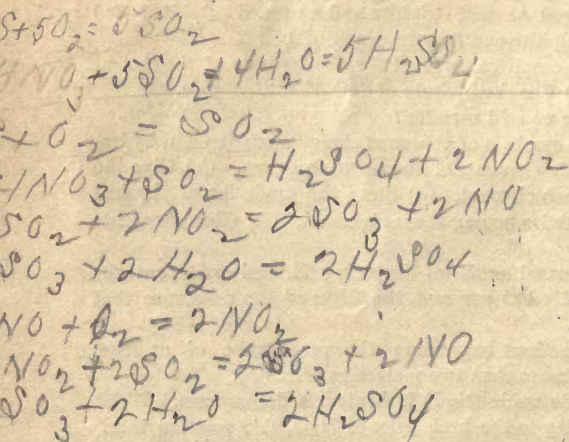 S+5O₂=5SO₂
4NO₃+5SO₂+4H₂O=5H₂SO₄
+O₂=SO₂
HNO₃+SO₂=H₂SO₄+2NO₂
SO₂+2NO₂=2SO₃+2NO
SO₃+2H₂O=2H₂SO₄
NO+O₂=2NO₂
NO₂+2SO₂=2SO₃+2NO
SO₃+2H₂O=2H₂SO₄